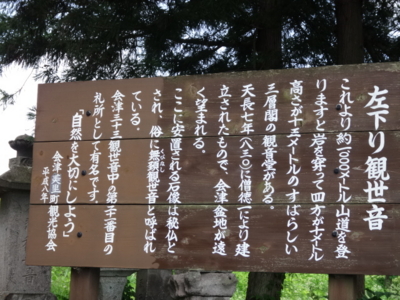 左下り観世音
これより約1000メートル山道を登
りますと岩を穿って四方がナメートル
高さが十三メートルのすばらしい
三層閣の観音堂がある。
天長七年(八三〇)に僧徳一により建
立されたもので、会津盆地が遠
く望まれる。
ここに安置される石像は秘仏と
され、俗に無頸観音と呼ばれ
ている。
会津三十三観世音中の第二十一番目の
札所として有名です。
「自然を大切にしよう」
会津美里町観光協会
平成八年